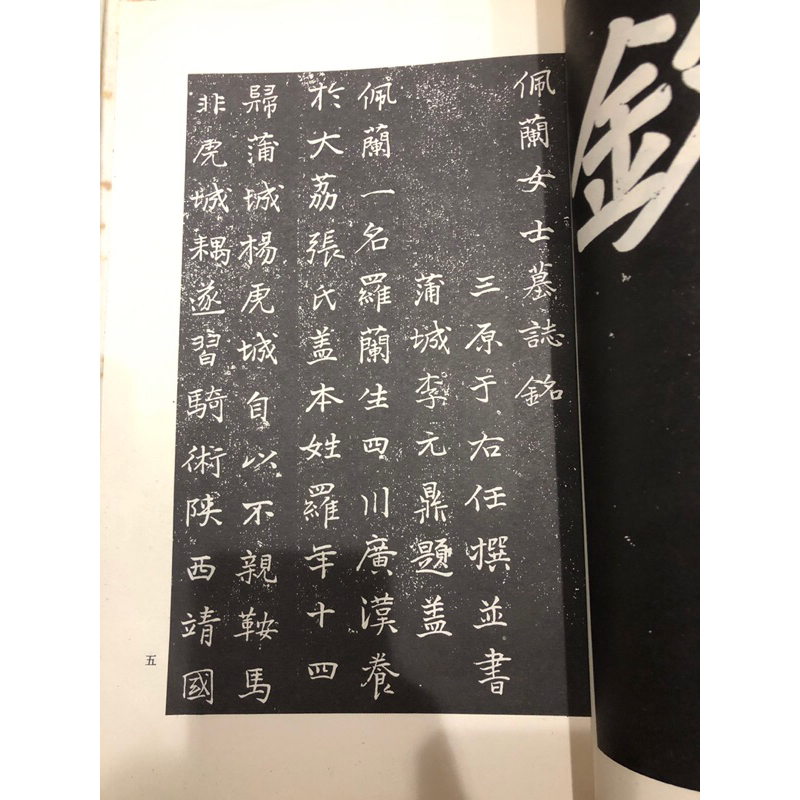 佩蘭女士墓誌銘
三原于右任撰並書
蒲城李元鼎題盖
佩蘭一名羅蘭生四川廣漢養
於大荔張氏盖本姓羅年十四
歸蒲城楊虎城自以不親鞍馬
非虎城耦遂習騎術陝西靖國
五